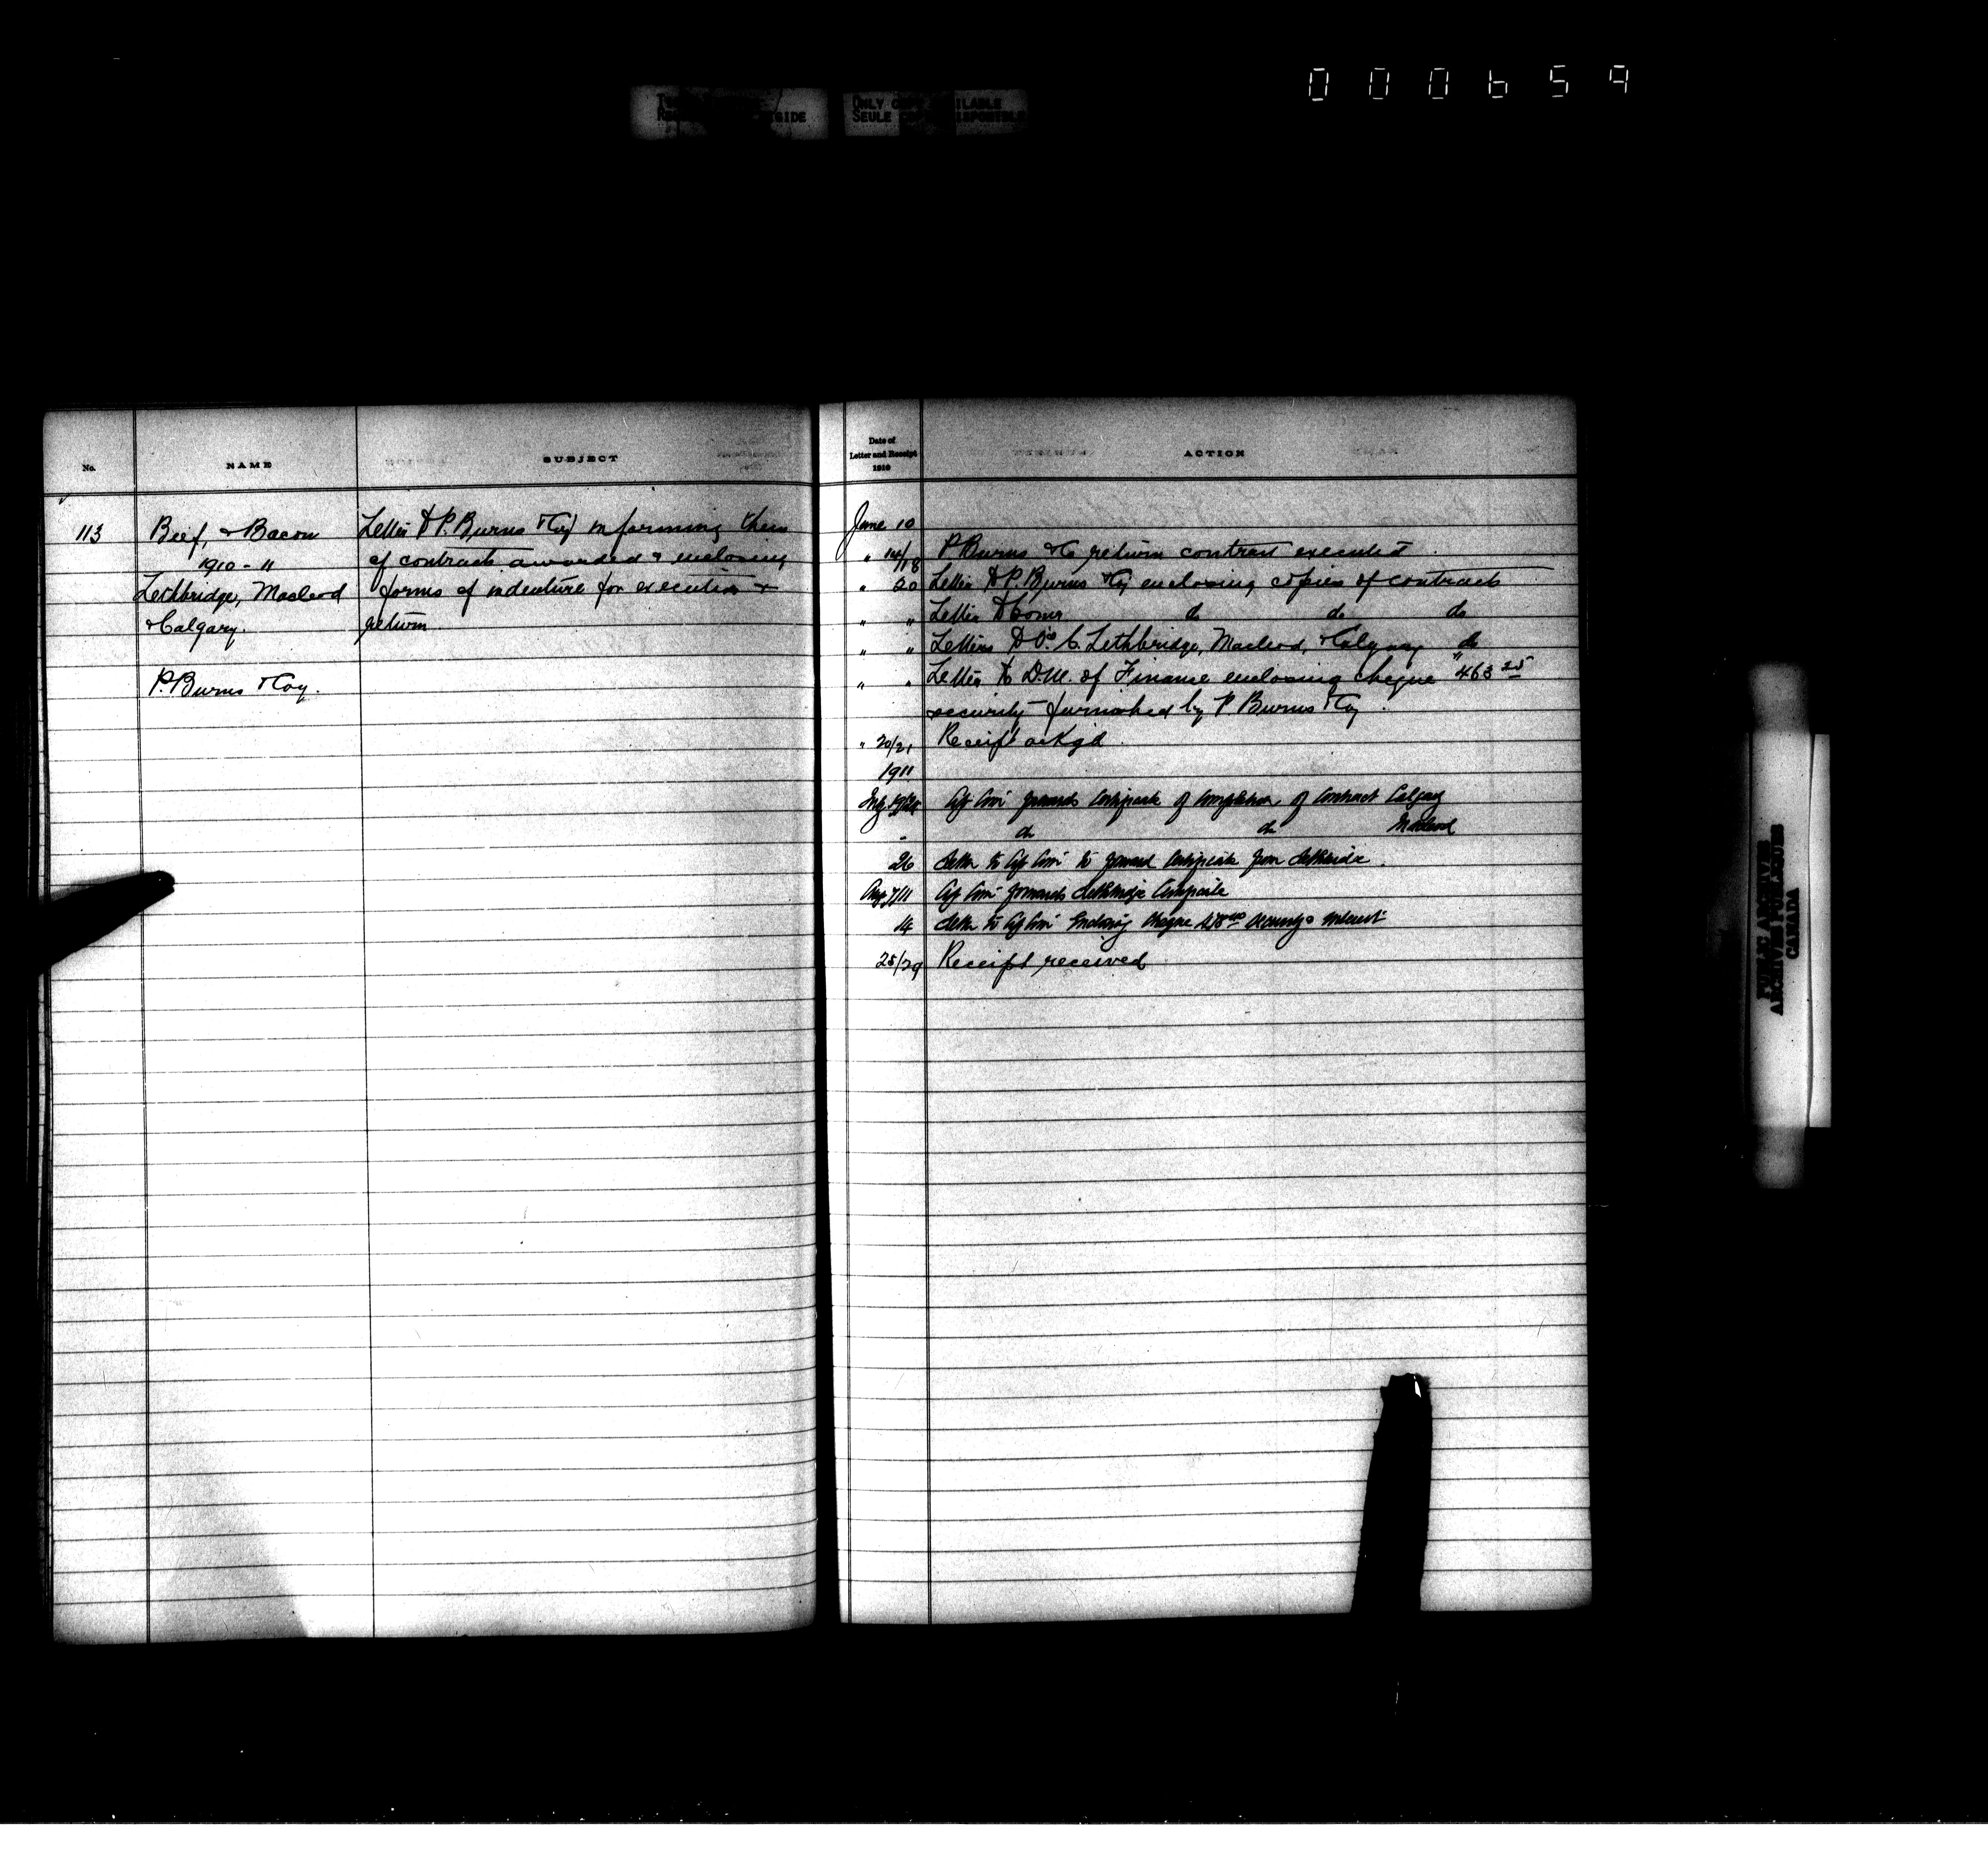 000659
ONLY COPY AVAILABLE
SEULE COPIE DISPONIBLE
No.
NAME
SUBJECT
113
Beef, & Bacon
1910-11
Lethbridge, Macleod
& Calgary.
P. Burns & Coy.
Letter to P. Burns & Coy informing them
of contracts awarded & enclosing
forms of indenture for execution &
return
Date of
Letter and Receipt
1910
ACTION
June 10
" 14/18 P. Burns & Co return contract executed.
" 20 Letter to P. Burns & Coy enclosing copies of contracts
" " Letter to Comr. do do do
" " Letters to O's C. Lethbridge, Macleod, & Calgary do
" " Letter to D.M. of Finance enclosing cheque "463 25
security furnished by P. Burns & Coy.
" 20/21 Receipt ackgd.
1911
forwards Certificate of Completion of Contract Calgary
" do do Macleod
26 Letter to to forward Certificate from Lethbridge.
Aug 7/11 forwards Lethbridge Certificate
14 Letter to Enclosing cheque security & interest
25/29 Receipt received
PUBLIC ARCHIVES
ARCHIVES PUBLIQUES
CANADA